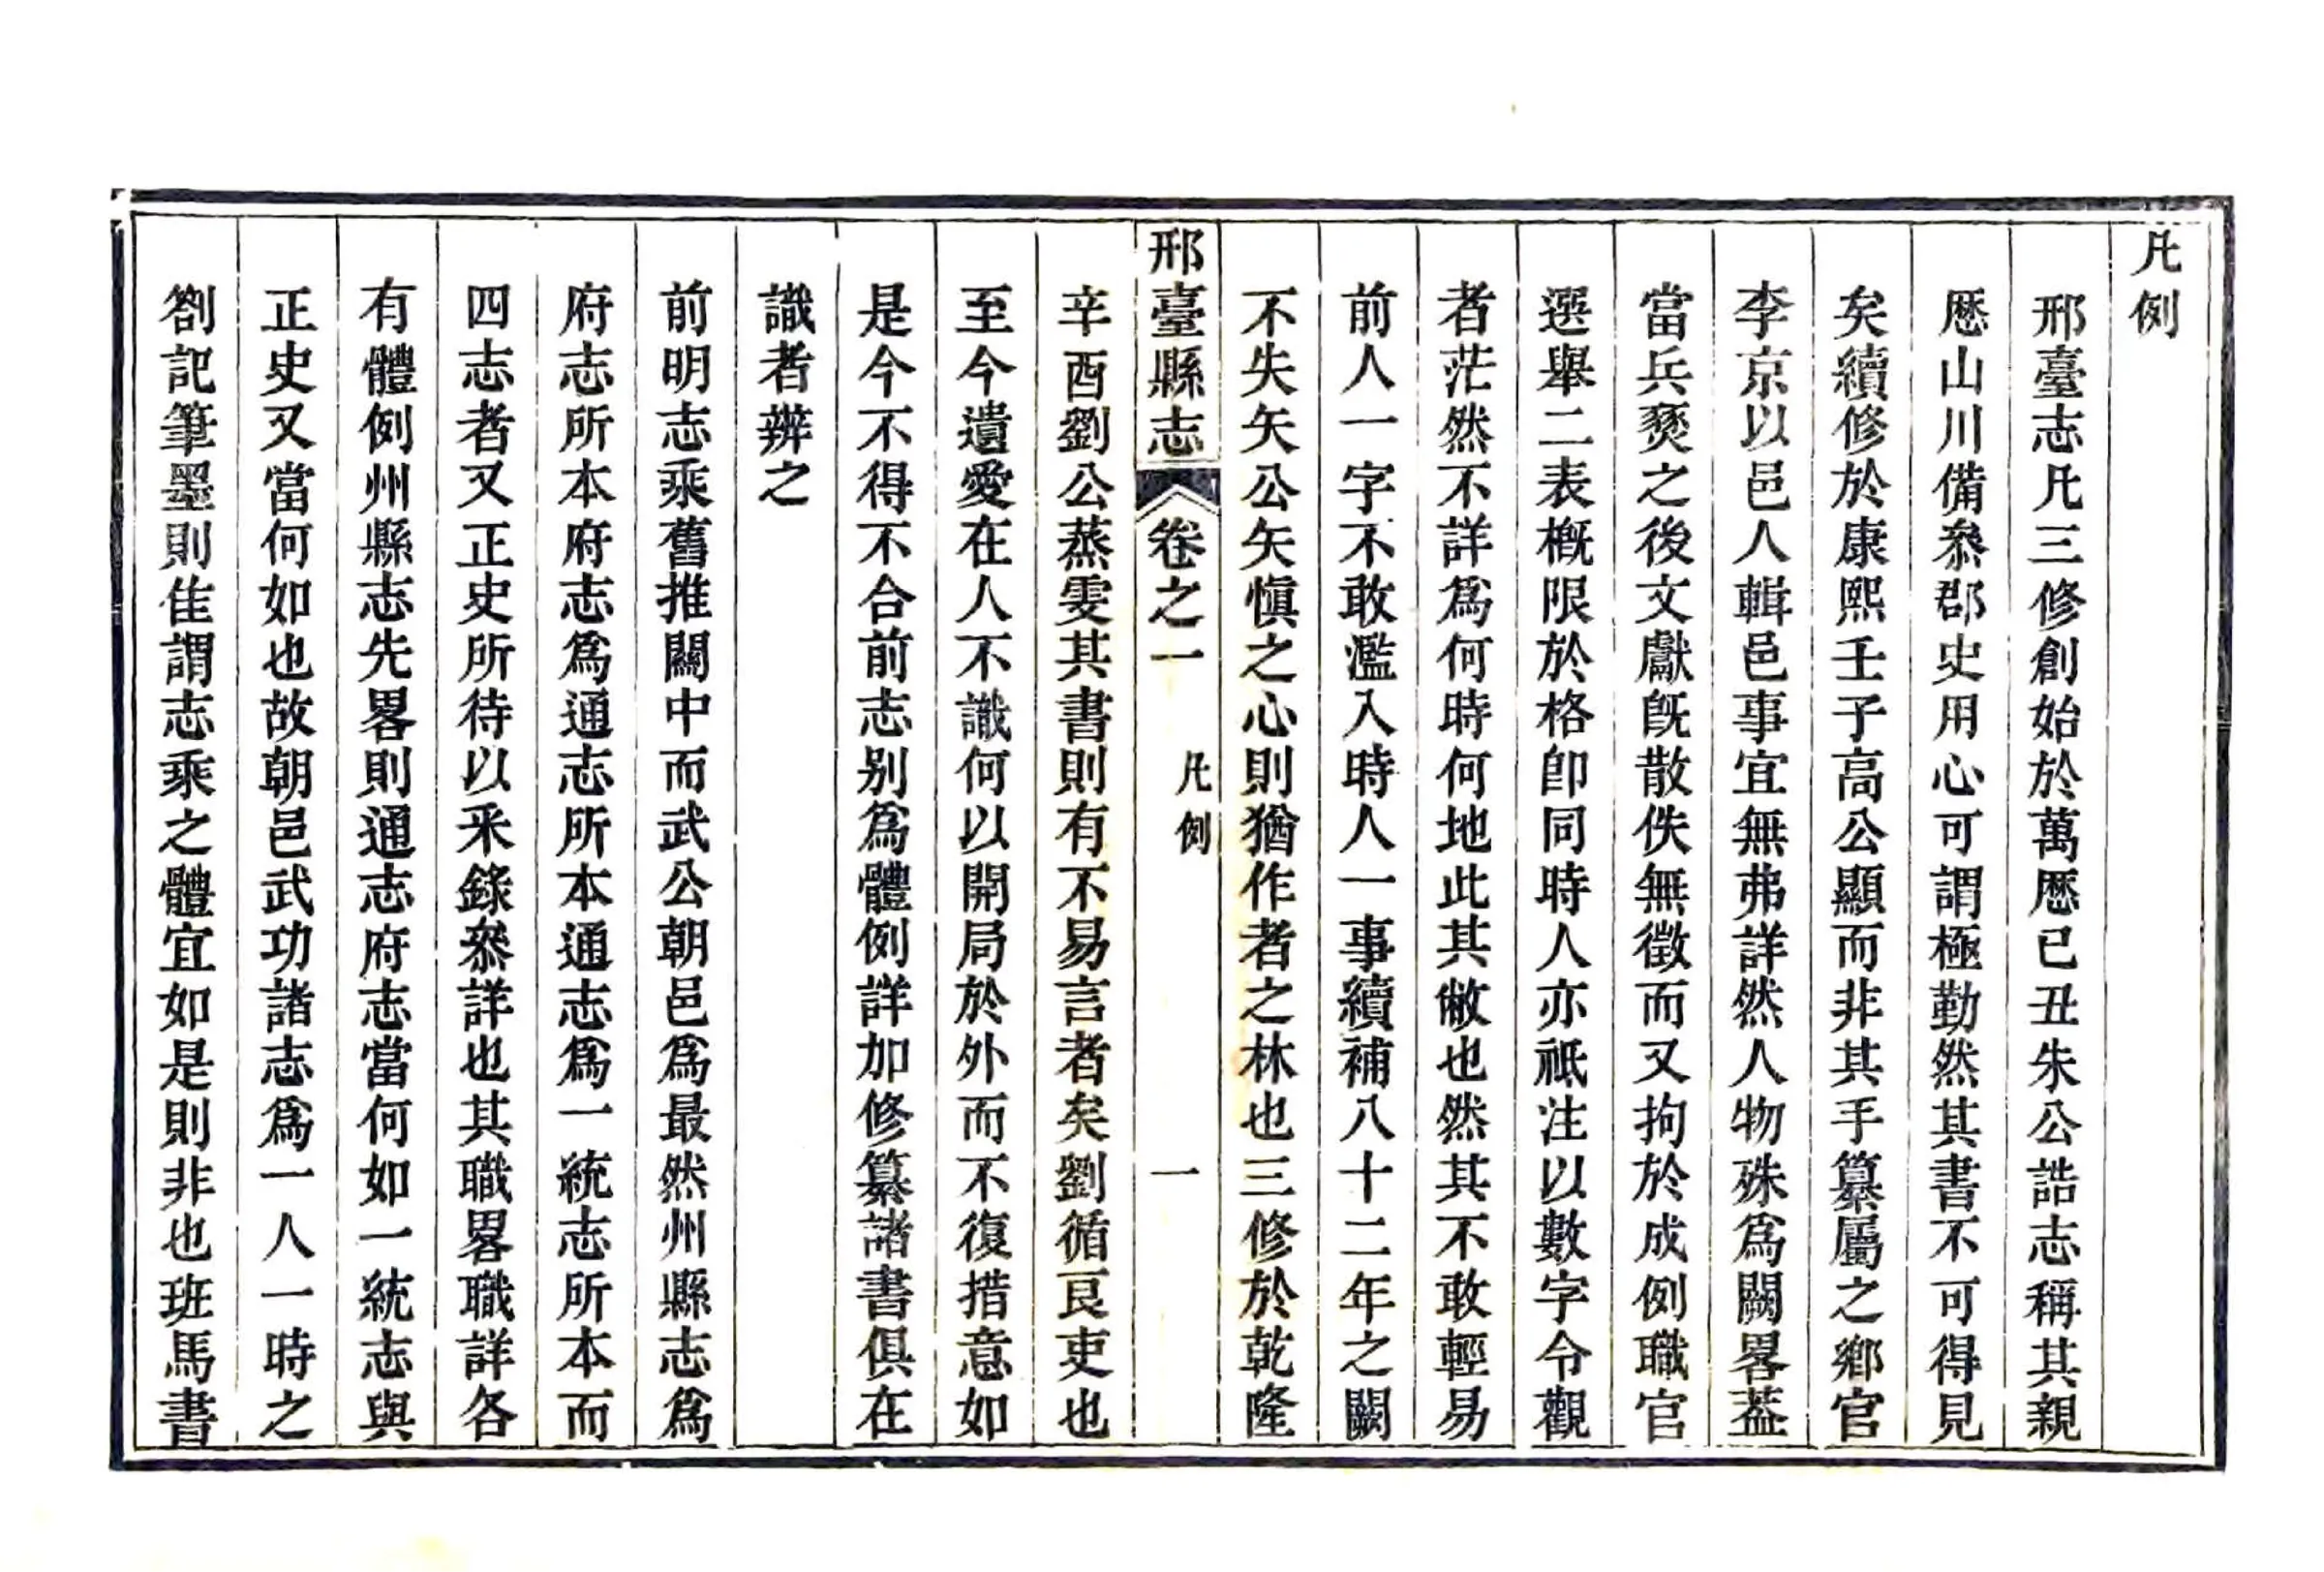 凡例
邢臺志凡三修創始於萬厯己丑朱公誥志稱其親
厯山川備叅郡史用心可謂極勤然其書不可得見
矣續修於康熙壬子高公顯而非其手纂屬之鄉官
李京以邑人輯邑事宜無弗詳然人物殊爲闕畧葢
當兵燹之後文獻旣散佚無徵而又拘於成例職官
選舉二表槪限於格卽同時人亦祇注以數字令觀
者茫然不詳爲何時何地此其敝也然其不敢輕易
前人一字不敢濫入時人一事續補八十二年之闕
不失矢公矢愼之心則猶作者之林也三修於乾隆
邢臺縣志 卷之一 凡例 一
辛酉劉公蒸雯其書則有不易言者矣劉循良吏也
至今遺愛在人不識何以開局於外而不復措意如
是今不得不合前志别爲體例詳加修纂諸書俱在
識者辨之
前明志乘舊推關中而武公朝邑爲最然州縣志爲
府志所本府志爲通志所本通志爲一統志所本而
四志者又正史所待以釆錄叅詳也其職畧職詳各
有體例州縣志先畧則通志府志當何如一統志與
正史又當何如也故朝邑武功諸志爲一人一時之
劄記筆墨則佳謂志乘之體宜如是則非也班馬書